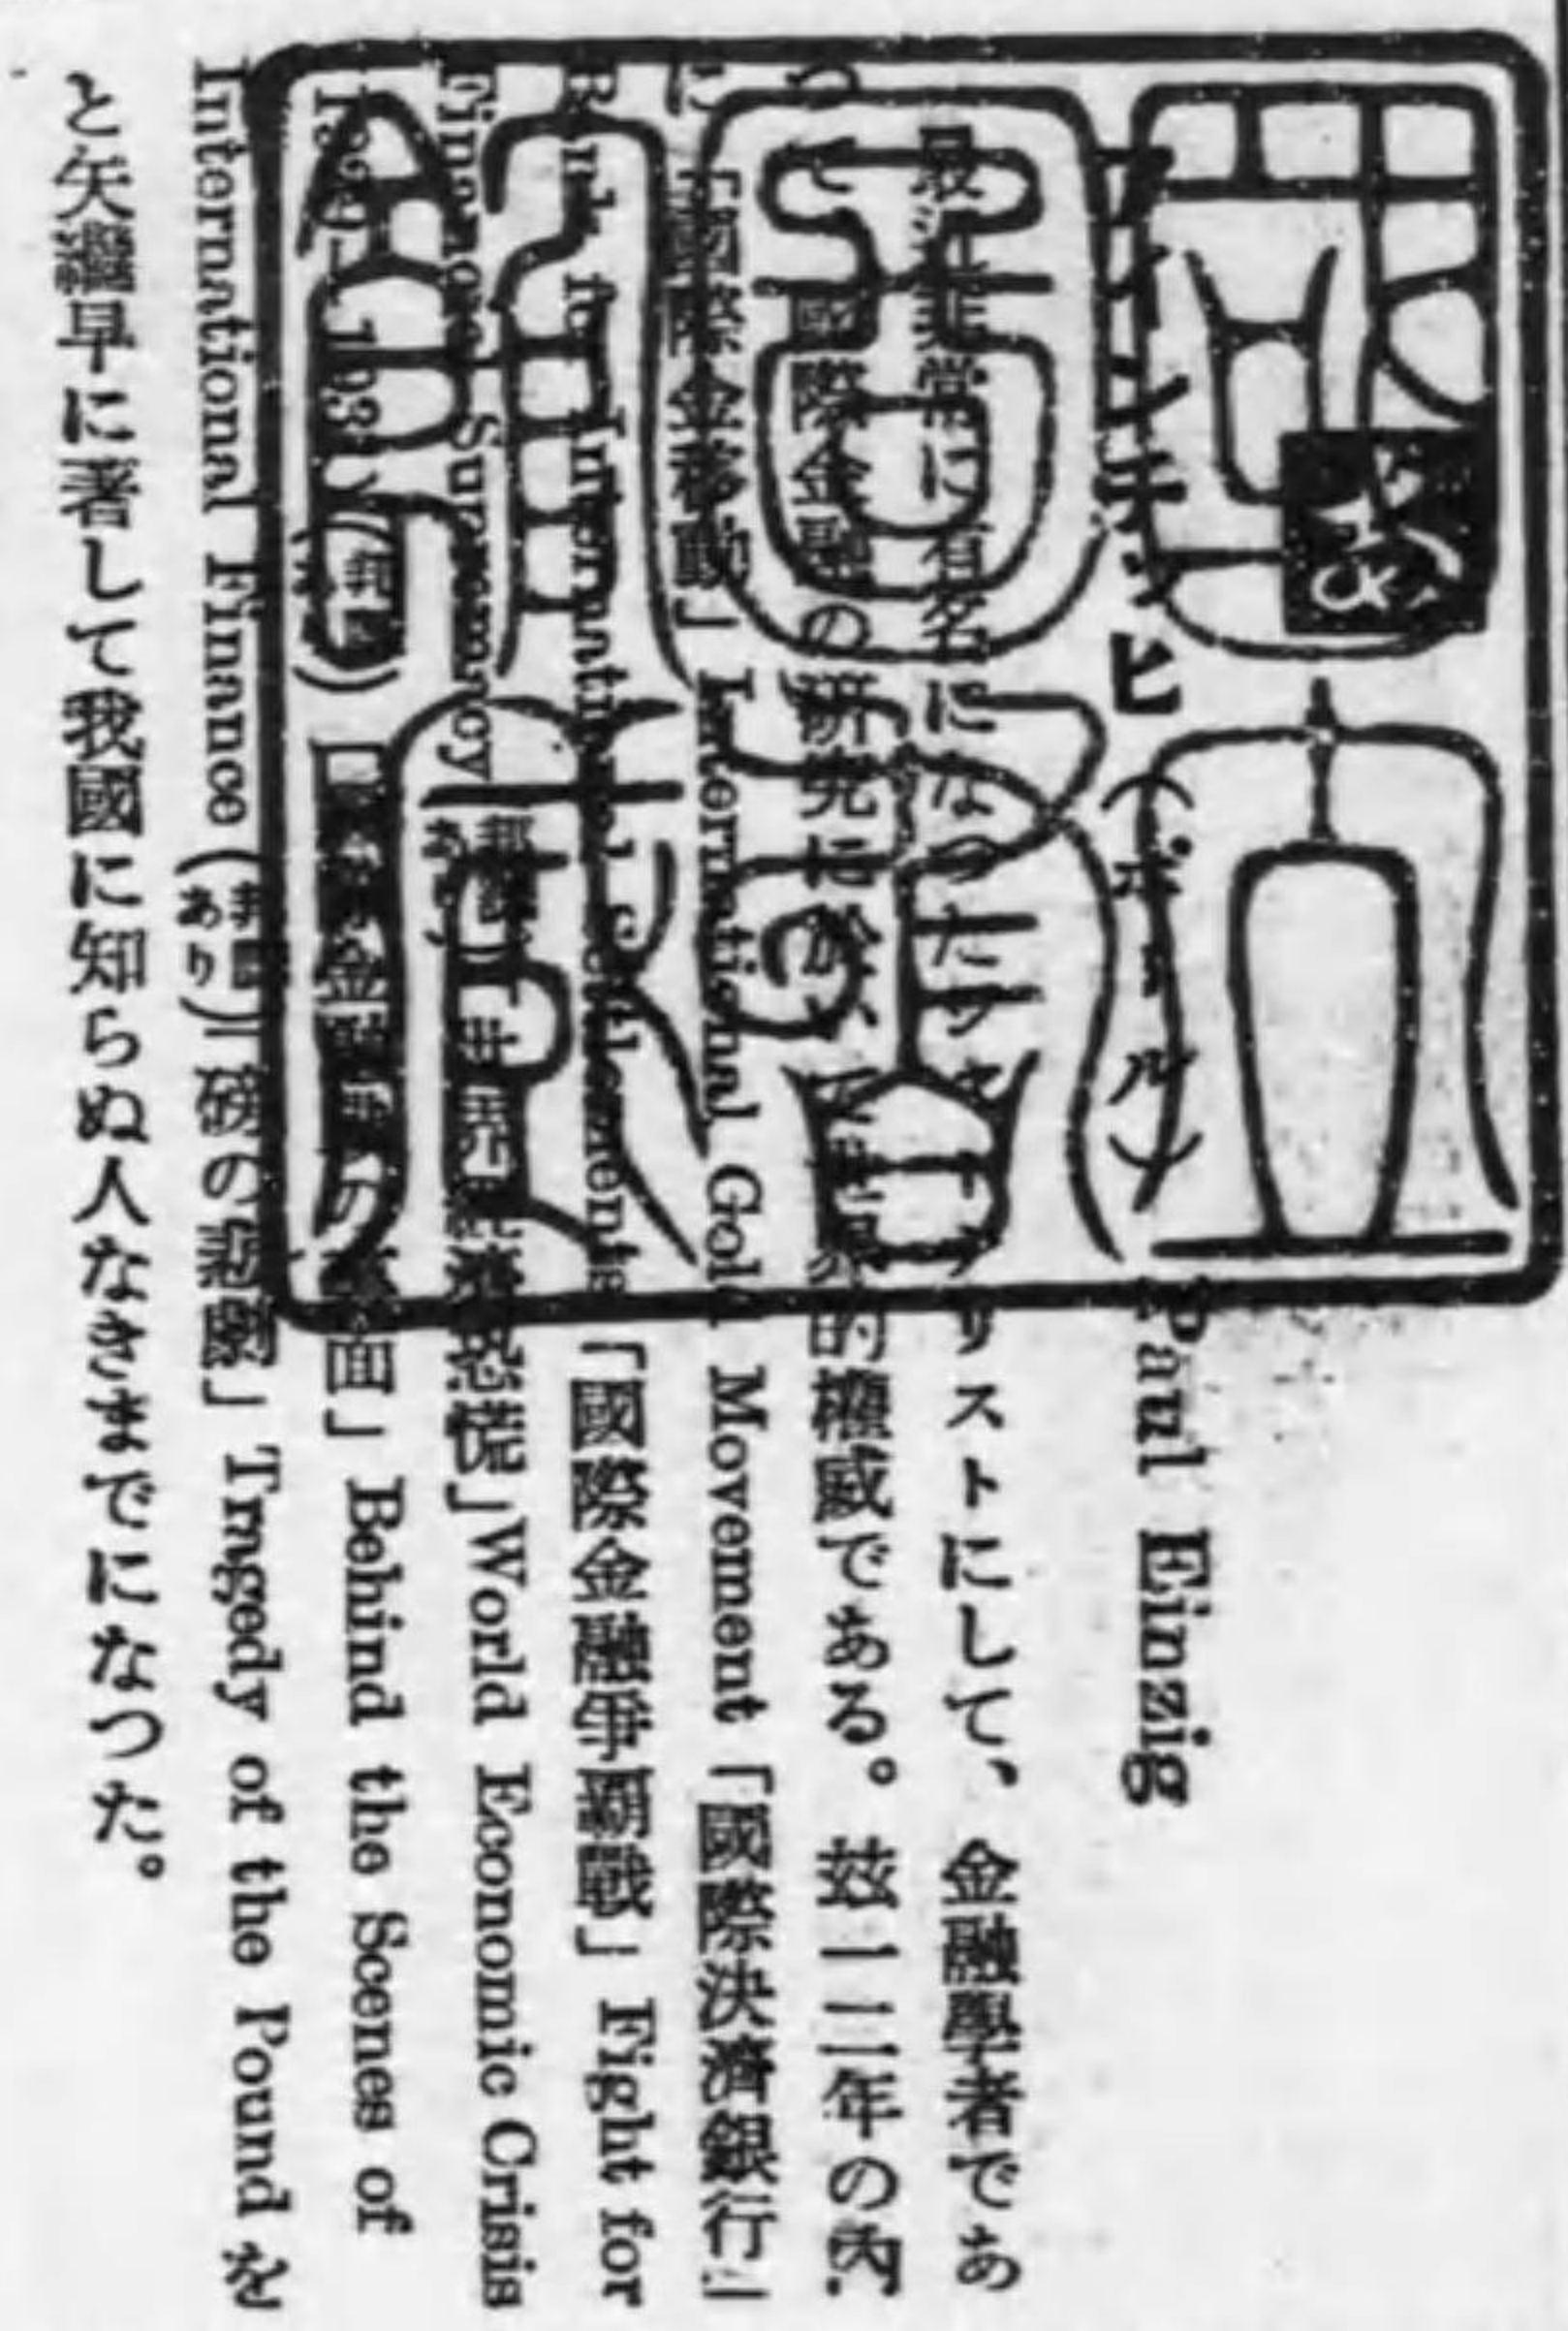 アインチッヒ(ポール) Paul Einzig
最近非常に有名になったジャーナリストにして、金融學者であ
つて國際金融の研究に於いて世界的權威である。玆一二年の內
に「國際金移動」International Gold Movement「國際決濟銀行」
Bank for International Settlements「國際金融爭覇戰」Fight for
Financial Supremacy(邦譯あり)「世界經濟恐慌」World Economic Crisis
(邦譯あり)「國際金融 の 面」Behind the Scenes of
International Finance(邦譯あり)「磅の悲劇」Tragedy of the Pound を
と矢繼早に著して我國に知らぬ人なきまでになつた。